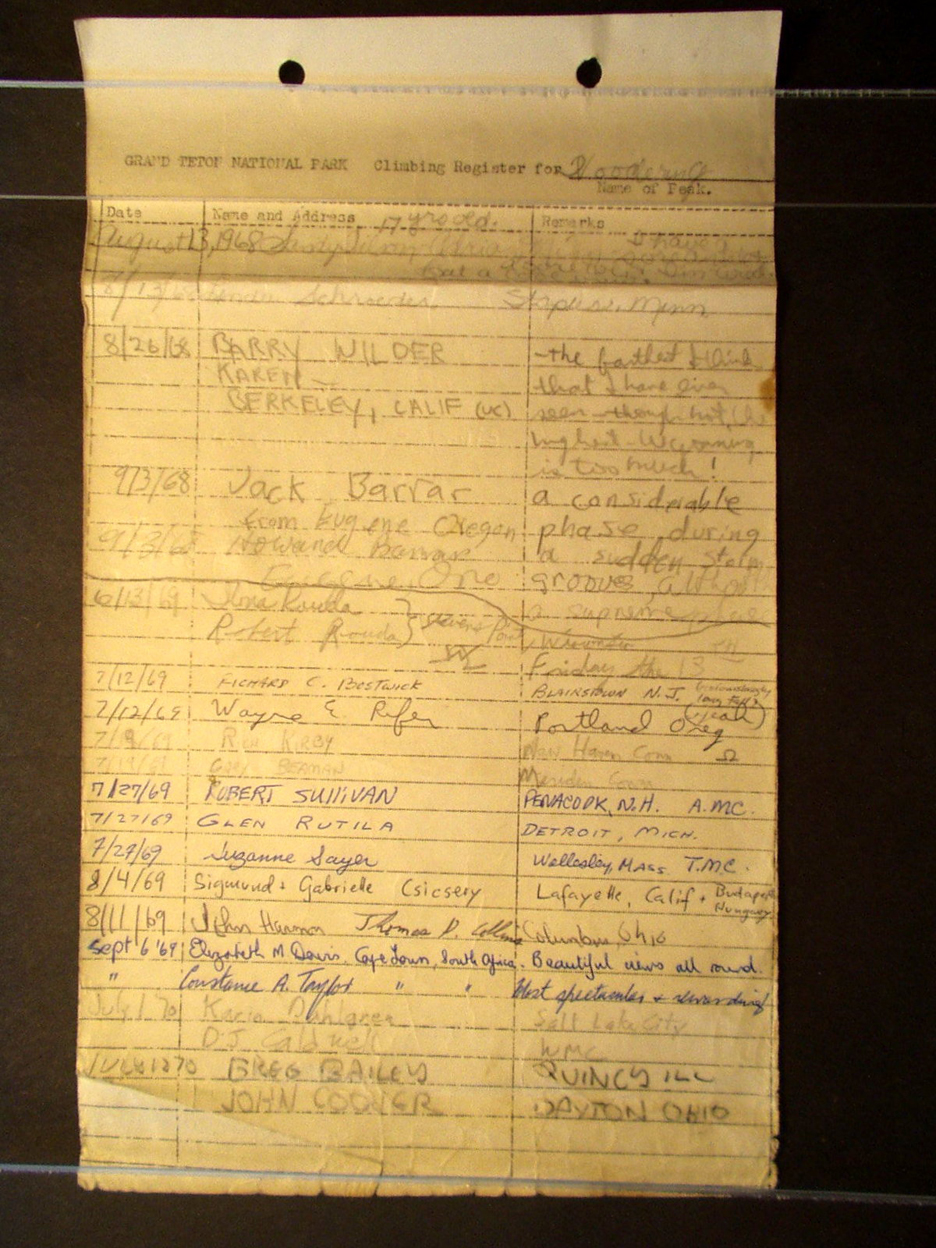 GRAND TETON NATIONAL PARK Climbing Register for Woodring
Name of Peak.
Date Name and Address 17 yrs old. Remarks
August 13, 1968 I have a
but a
8/13/68 Schroeder St. Paul, Minn
8/26/68 BARRY WILDER -the farthest I think
KAREN that I have ever
BERKELEY, CALIF (UC) seen -though not the
highest. Wyoming
is too much!
9/3/68 Jack Barrar a considerable
from Eugene Oregon phase during
9/3/68 Howard Barrar a sudden storm
Eugene, Ore grooves,
6/13/69 Rouda a supreme place
Robert Rouda Stevens Point, Wisconsin
Friday the 13TH
7/12/69 RICHARD C. BOSTWICK BLAIRSTOWN N.J.
7/12/69 Wayne E Rifer Portland Oreg (yeah)
7/19/69 Rich KIRBY New Haven Conn Ω
7/19/69 GARY BEAMAN Meriden Conn
7/27/69 ROBERT SULLIVAN PENACOOK, N.H. A.M.C.
7/27/69 GLEN RUTILA DETROIT, MICH.
7/27/69 Suzanne Sayer Wellesley, MASS T.M.C.
8/4/69 Sigmund & Gabrielle Csicsery Lafayette, Calif + Budapest Hungary
8/11/69 John Harmon Thomas D. Collins Columbus Ohio
Sept 6 '69 Elizabeth M Davis. Cape Town, South Africa. Beautiful views all round.
" Constance A. Taylor " " Most spectacular & rewarding!
July 1 70 Karin Dahlgren Salt Lake City
D.J. Caldwell WMC
JULY 12 70 GREG BAILEY QUINCY ILL
JOHN COOVER DAYTON OHIO